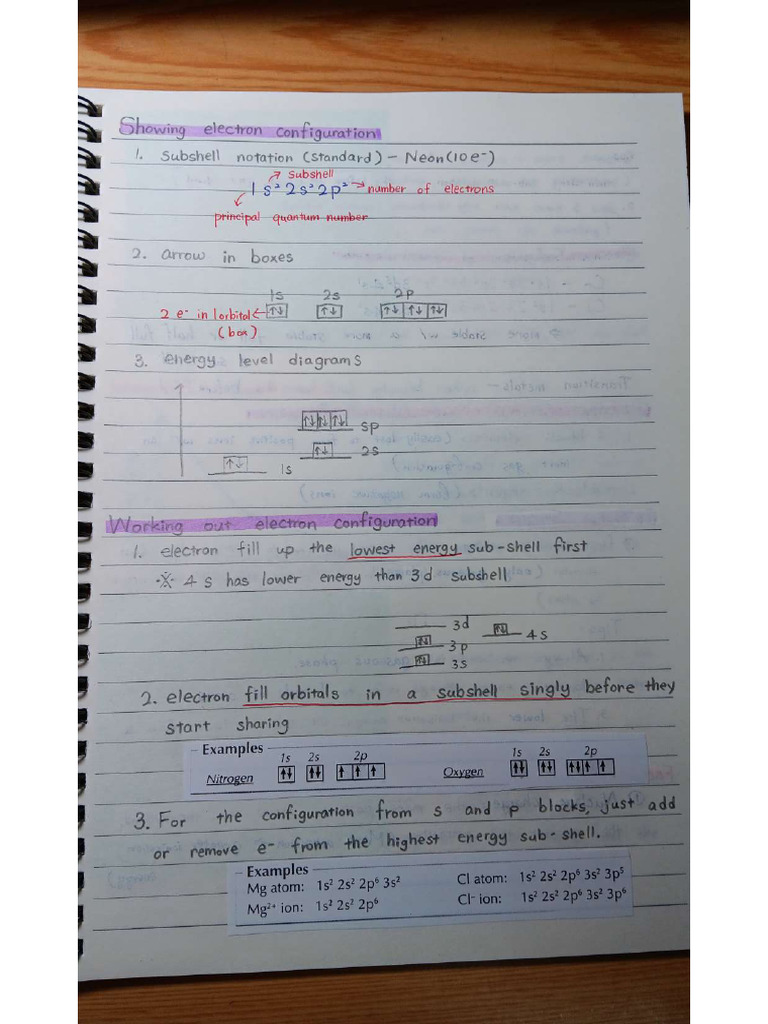 Showing electron configuration
1. Subshell notation (standard) - Neon (10 e⁻)
subshell
1s² 2s² 2p² → number of electrons
principal quantum number
2. arrow in boxes
1s 2s 2p
2 e⁻ in 1orbital ← ↑↓ ↑↓ ↑↓ ↑↓ ↑↓
(box)
3. energy level diagrams
↑↓ ↑↓ ↑↓ sp
↑↓ 2s
↑↓ 1s
Working out electron configuration
1. electron fill up the lowest energy sub-shell first
※ 4s has lower energy than 3d subshell
3d ↑↓ 4s
↑↓ 3p
↑↓ 3s
2. electron fill orbitals in a subshell singly before they
start sharing
Examples
1s 2s 2p 1s 2s 2p
Nitrogen ↑↓ ↑↓ ↑ ↑ ↑ Oxygen ↑↓ ↑↓ ↑↓ ↑ ↑
3. For the configuration from s and p blocks, just add
or remove e⁻ from the highest energy sub-shell.
Examples
Mg atom: 1s² 2s² 2p⁶ 3s² Cl atom: 1s² 2s² 2p⁶ 3s² 3p⁵
Mg²⁺ ion: 1s² 2s² 2p⁶ Cl⁻ ion: 1s² 2s² 2p⁶ 3s² 3p⁶